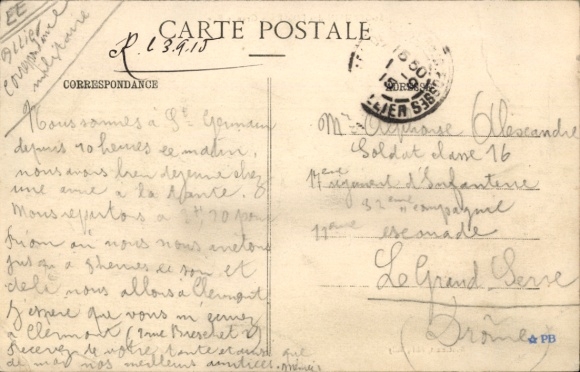 EE
Allier
Correspondance
militaire
CARTE POSTALE
R. l 3.9.15
CORRESPONDANCE
ADRESSE
15 50
1 - 9
15
ALLIER
Nous sommes à St Germain
depuis 10 heures ce matin,
nous avons bien déjeuné chez
une amie à la tante.
Nous repartons à 30 pour
Riom où nous nous arrêtons
jusqu'à heures ce soir et
de là nous allons à Clermont
J'espère que vous m'écrivez
à Clermont (rue Breschet)
Recevez de votre tante et ainsi que
de moi nos meilleurs amitiés. Mimi
Mr Alphonse Alexandre
Soldat classe 16
17eme régiment d'Infanterie
32eme compagnie
11ème escouade
Le Grand Serre
(Drôme)
PB